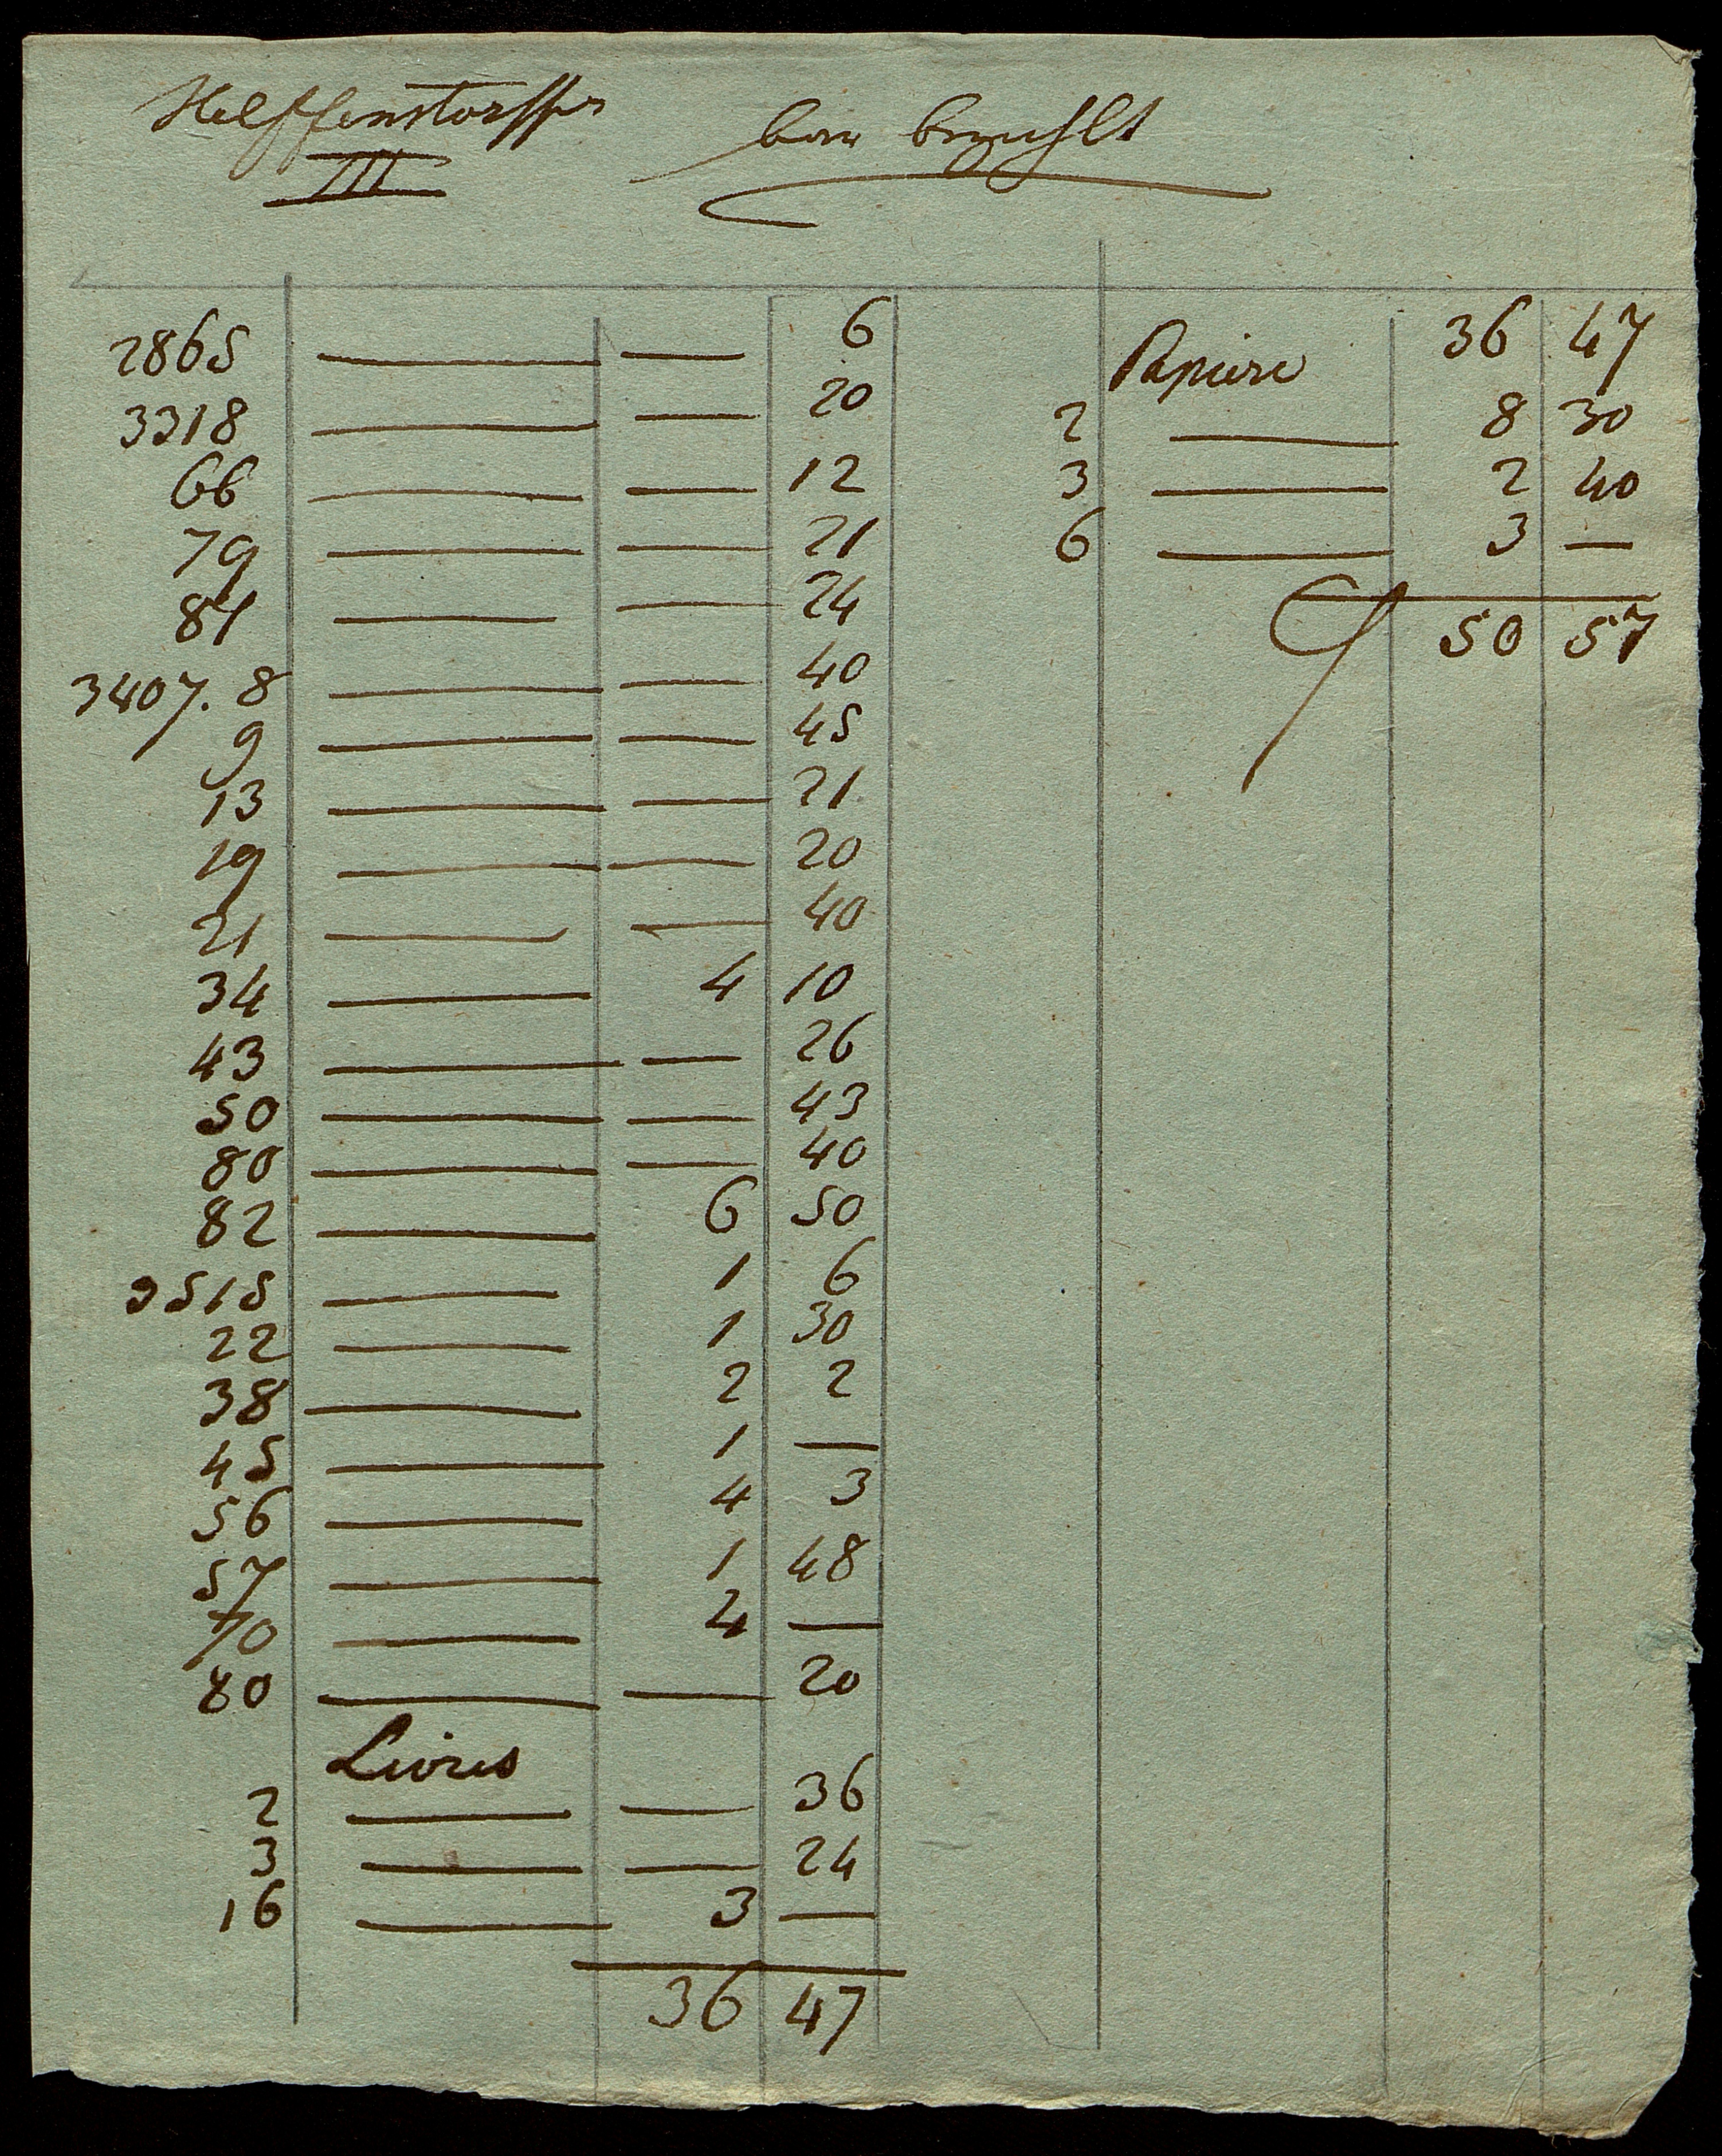 Helffenstorffer
III
baar bezahlt
2865 — — 6
3318 — — 20
66 — — 12
79 — — 21
81 — — 24
3407. 8 — — 40
9 — — 45
13 — — 21
19 — — 20
21 — — 40
34 — 4 10
43 — — 26
50 — — 43
80 — — 40
82 — 6 50
3515 — 1 6
22 — 1 30
38 — 2 2
45 — 1 —
56 — 4 3
57 — 1 48
70 — 4 —
80 — — 20
Livres
2 — — 36
3 — — 24
16 — 3 —
36 47
36 47
Papiere
2 — 8 30
3 — 2 40
6 — 3 —
50 57